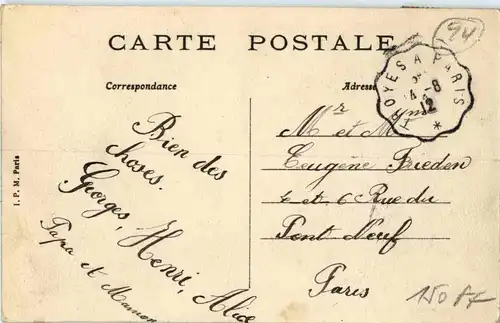 94
CARTE POSTALE
Correspondance
Adresse
TROYES A PARIS
-8
12
*
Bien des
choses.
Georges, Henri, Alice
Papa et Maman
Mr et Mme
Eugène Frieden
4 et 6 Rue du
Pont Neuf
Paris
I. P. M. Paris
150 FF